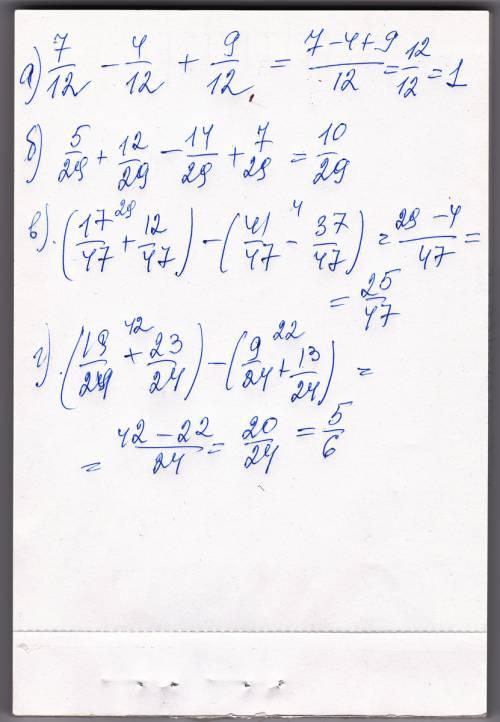 а) 7/12 − 4/12 + 9/12 = (7−4+9)/12 = 12/12 = 1
б) 5/29 + 12/29 − 14/29 + 7/29 = 10/29
в) (17/47 + 12/47) − (41/47 − 37/47) = (29 − 4)/47 =
29 4
= 25/47
г) (19/24 + 23/24) − (9/24 + 13/24) =
42 22
= (42 − 22)/24 = 20/24 = 5/6